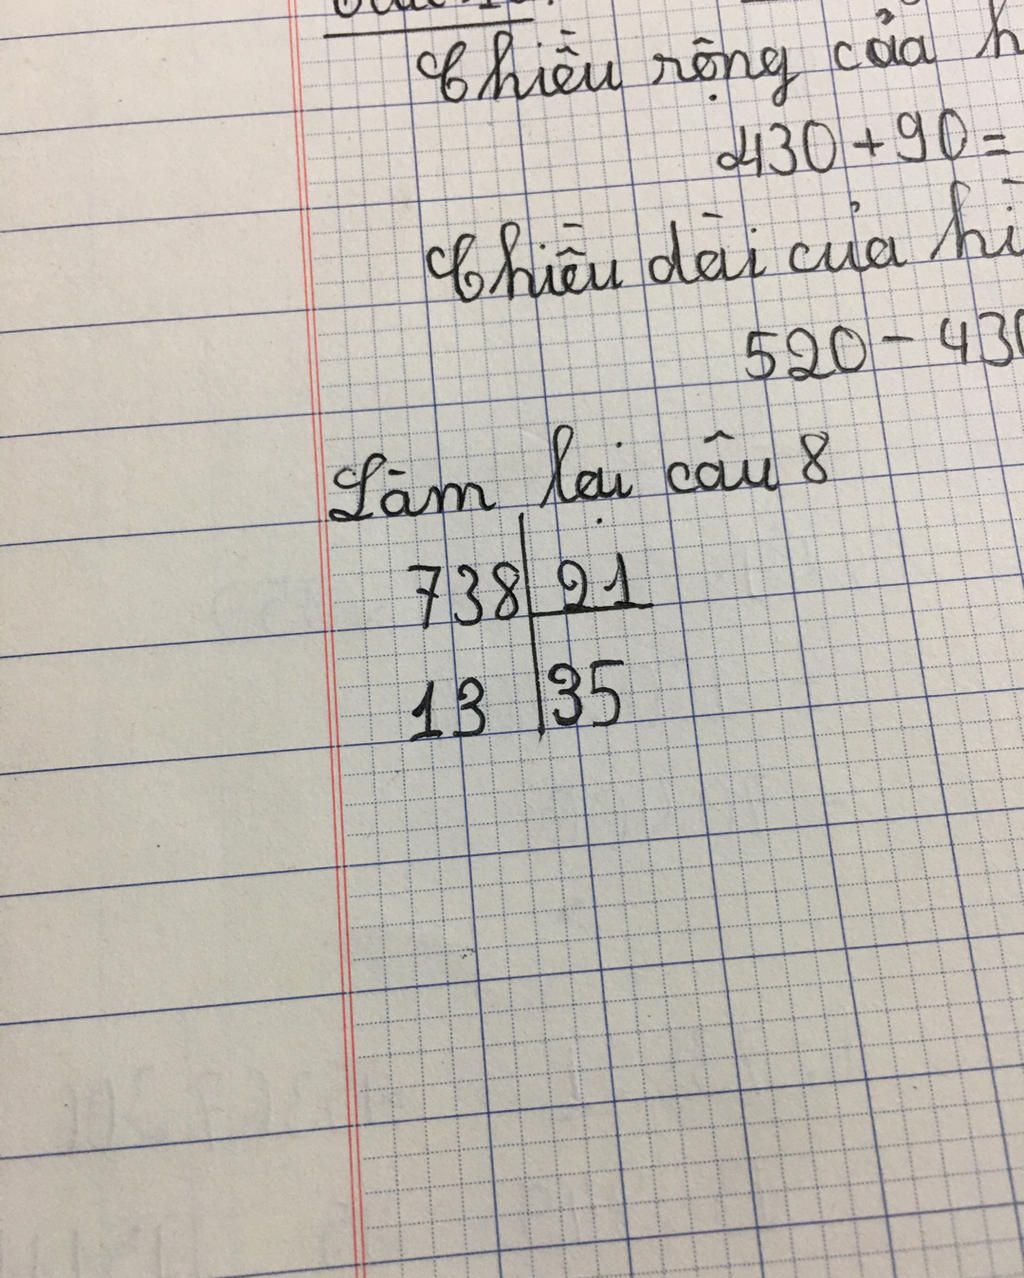 Chiều rộng của h
430 + 90 =
Chiều dài của hì
520 - 430
Làm lại câu 8
738 21
13 35